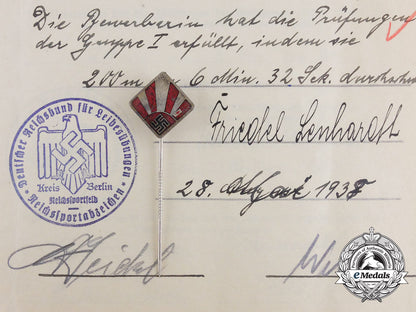 Die Bewerberin hat die Prüfungen
der Gruppe I erfüllt, indem sie
200 m in 6 Min. 32 Sek. durchschw
Friedel Lenhardt
28. 1938
Deutscher Reichsbund für Leibesübungen
Kreis Berlin
Reichssportfeld
Reichssportabzeichen
eMedals